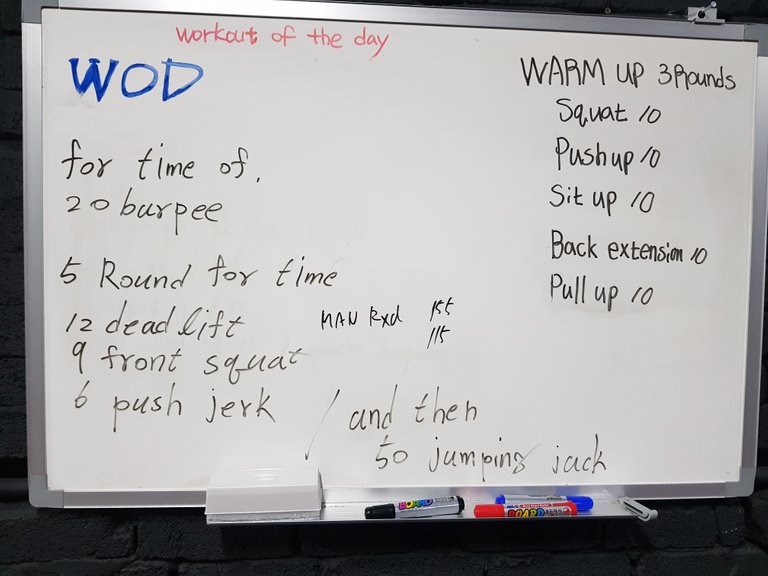 workout of the day
WOD
for time of.
20 burpee
5 Round for time
12 deadlift
9 front squat
6 push jerk
MAN Rxd 155
115
/ and then
50 jumping jack
WARM UP 3Rounds
Squat 10
Push up 10
Sit up 10
Back extension 10
Pull up 10
BOARD
BOARD